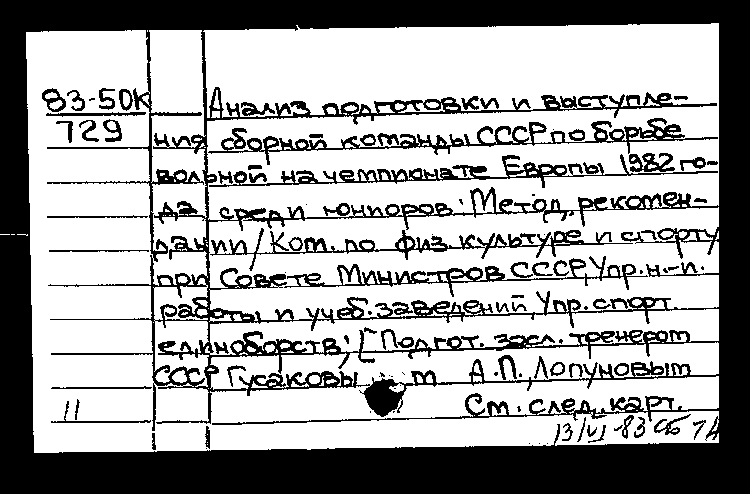 83-50К Анализ подготовки и выступле-
729 ния сборной команды СССР по борьбе
вольной на чемпионате Европы 1982 го-
да среди юниоров: Метод. рекомен-
дации / Ком. по физ. культуре и спорту
при Совете Министров СССР, Упр. н.-и.
работы и учеб. заведений, Упр. спорт.
единоборств; [Подгот. засл. тренером
СССР Гусаковым А.П., Лопуновым
11 См. след. карт.
13/VI-83